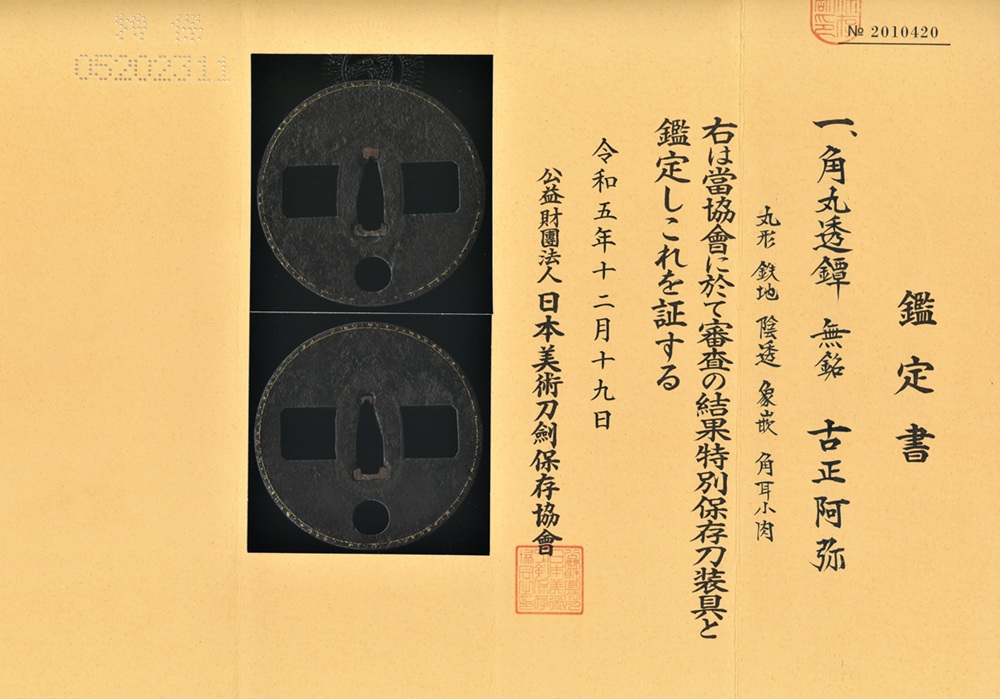 № 2010420
鑑定書
一、角丸透鐔 無銘 古正阿弥
丸形 鉄地 陰透 象嵌 角耳小肉
右は當協會に於て審査の結果特別保存刀装具と
鑑定しこれを証する
令和五年十二月十九日
公益財團法人 日本美術刀劍保存協會
05202311